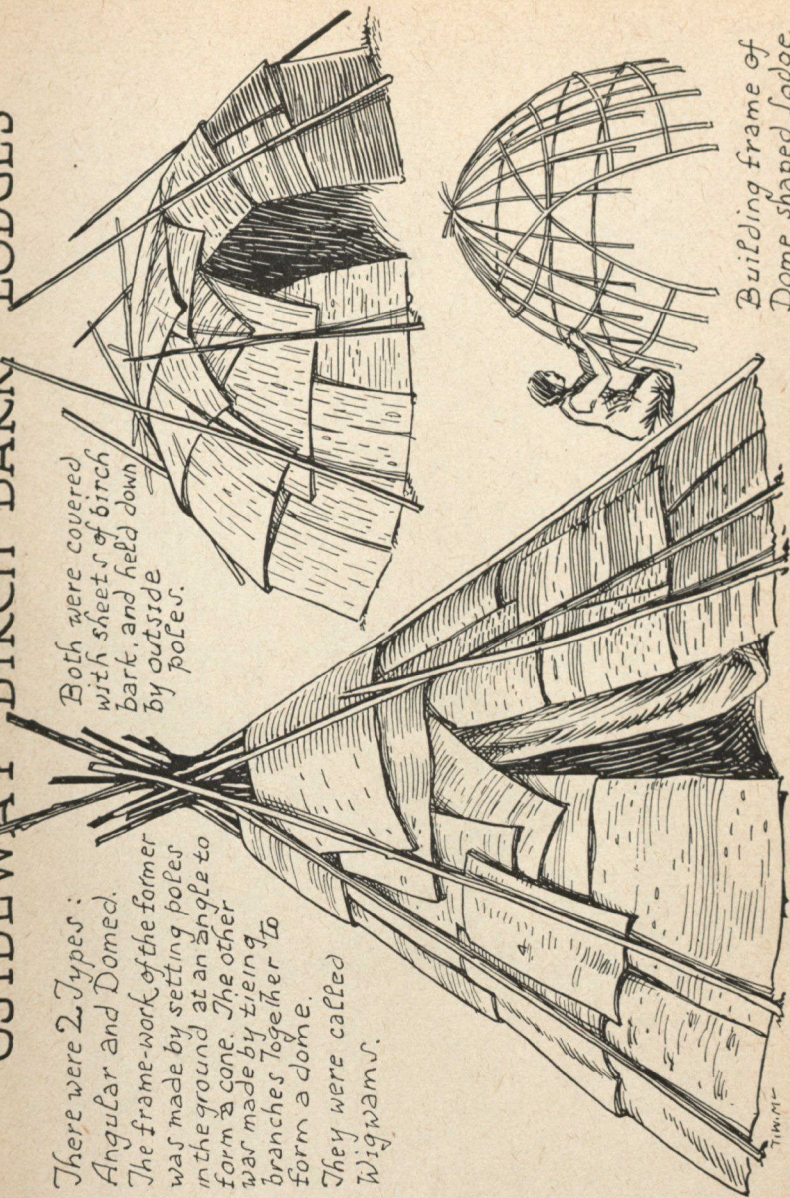 OJIBEWAY BIRCH BARK LODGES
There were 2 Types:
Angular and Domed.
The frame-work of the former
was made by setting poles
in the ground at an angle to
form a cone. The other
was made by tieing
branches Together to
form a dome.
They were called
Wigwams.
Both were covered
with sheets of birch
bark, and held down
by outside
poles.
Building frame of
Dome shaped Lodge